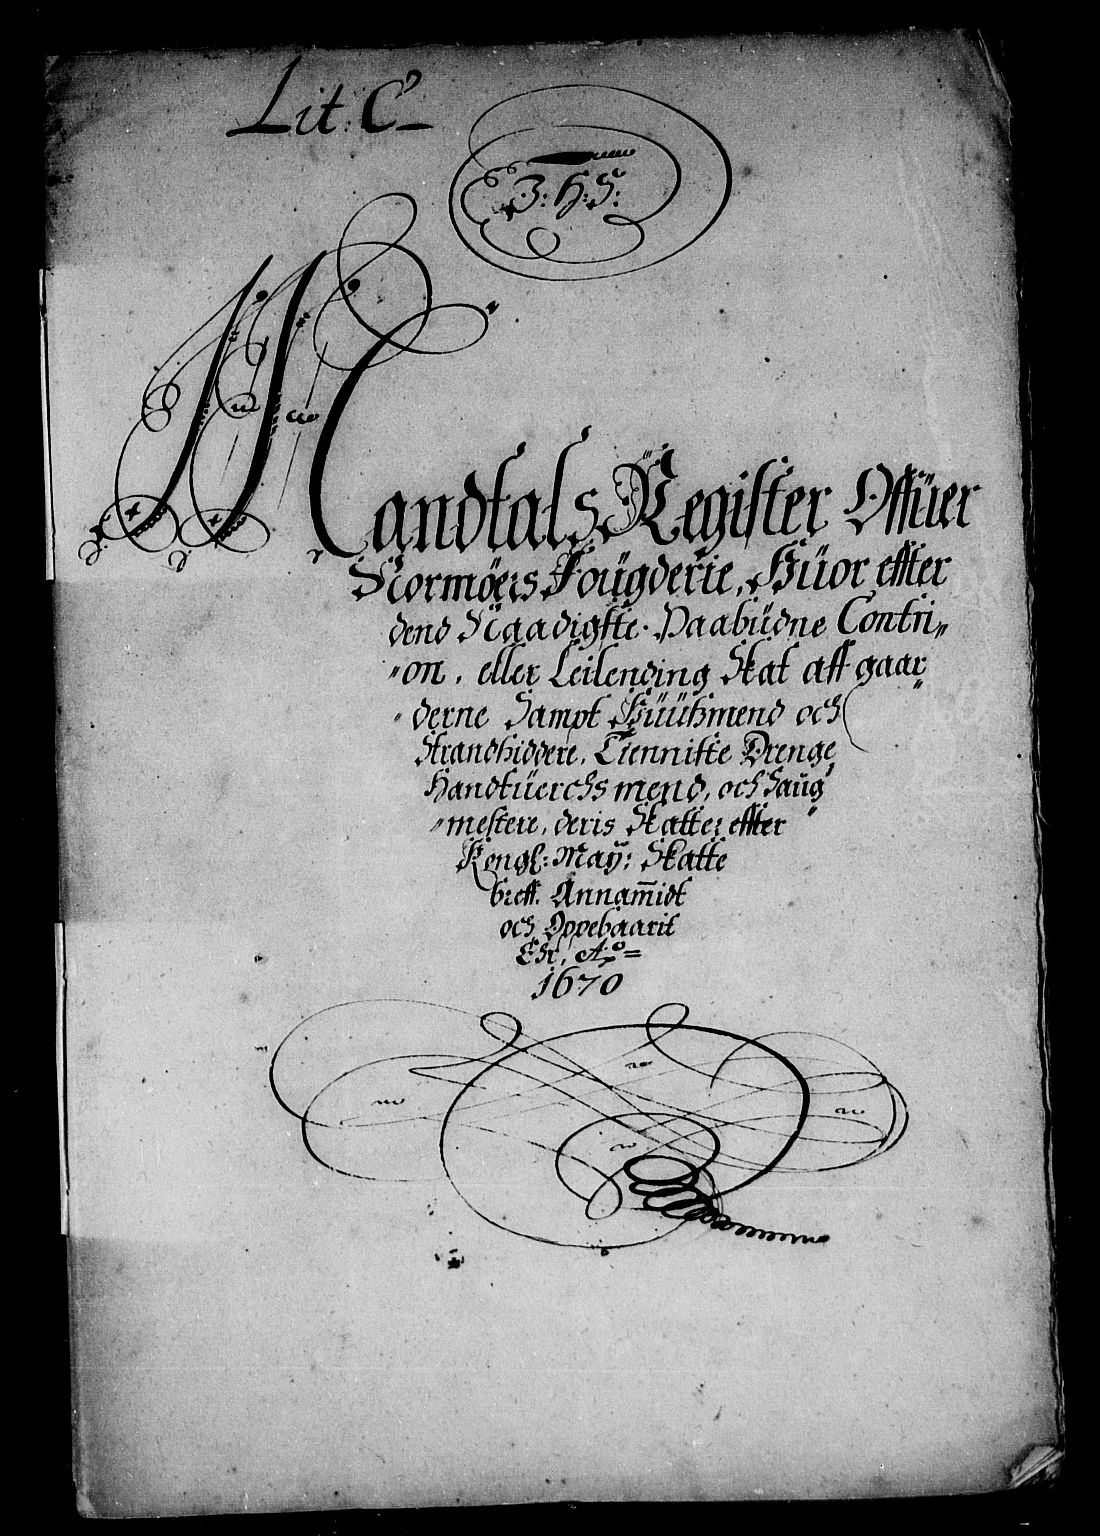 Lit: C
J: H: S:
Mandtals Register Offuer
Normøers Fougderie, Huor effter
dend Naadigste Paabüdne Contri„
„on, eller Leilending Skat aff gaar
„derne Sampt Hüüsmend och
Strandsiddere, Tienniste Drenge,
Handtüerchs mend, och Saug
„mestere, deris Skatter effter
Kongl: May: Skatte
breff. Annam̄idt
och Oppebaarit
Chr, Ao=
1670